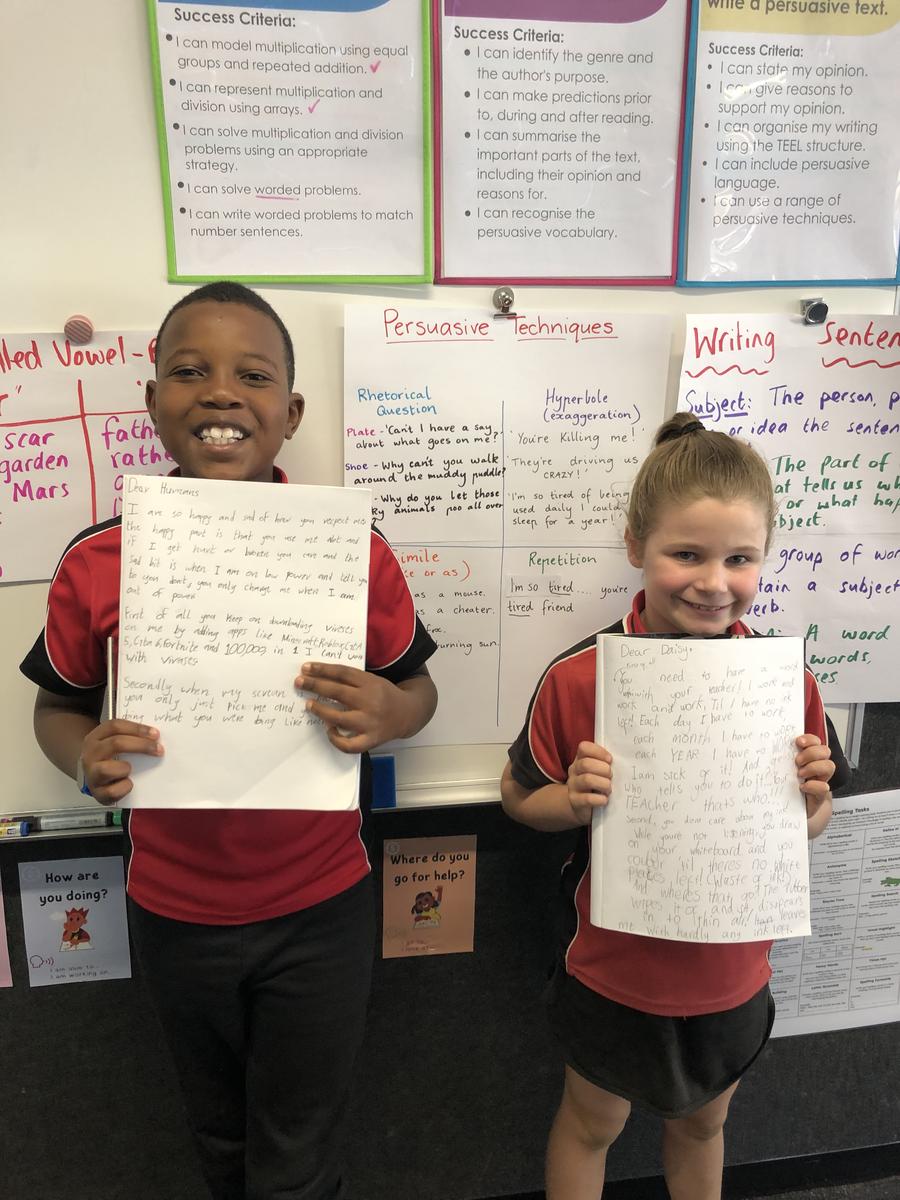 Success Criteria:
I can model multiplication using equal
groups and repeated addition. ✓
I can represent multiplication and
division using arrays. ✓
I can solve multiplication and division
problems using an appropriate
strategy.
I can solve worded problems.
I can write worded problems to match
number sentences.
Success Criteria:
I can identify the genre and
the author's purpose.
I can make predictions prior
to, during and after reading.
I can summarise the
important parts of the text,
including their opinion and
reasons for.
I can recognise the
persuasive vocabulary.
write a persuasive text.
Success Criteria:
I can state my opinion.
I can give reasons to
support my opinion.
I can organise my writing
using the TEEL structure.
I can include persuasive
language.
I can use a range of
persuasive techniques.
lled Vowel-
scar
garden
Mars
fath
rath
Persuasive Techniques
Rhetorical
Question
Plate - 'Can't I have a say
about what goes on me?'
Shoe - Why can't you walk
around the muddy puddle?
- Why do you let those
ky animals poo all over
Hyperbole
(exaggeration)
'You're killing me!'
'They're driving us
CRAZY!'
'I'm so tired of being
used daily I could
sleep for a year!'
imile
or as)
as a mouse.
s a cheater.
burning sun.
Repetition
I'm so tired.... you're
tired friend
Writing Senten
Subject: The person, p
or idea the senten
The part of
at tells us wh
or what hap
bject.
group of wor
tain a subject
verb.
A word
words,
Dear Humans
I are so happy and sad of how you respect me
the happy part is that you use me alot and
if I get hurt or broken you care and the
sad bit is when I am on low power and tell you
to you don't, you only charge me when I am
out of power
First of all you keep on downloading viruses
on me by adding apps like Minecraft, Roblox, GtA
5, Gta 6, fortnite and 100,000 in 1 I can't work
with viruses
Secondly when my screen is
you only just pick me and
doing what you were doing like
Dear Daisy,
You need to have a word
with your teacher! I work and
work and work, Till I have no ink
left. Each day I have to work,
each month I have to work
each YEAR I have to work
I am sick of it! And
who tells you to do it? Your
TEACHER thats who...!!!
Second, you dont care about my ink
While you're not listening, you draw
on your whiteboard and you
colour 'til theres no white
places left! (Waste of ink!)
And wheres that go? The rubber
wipes it or and it disapears
in to thin air! leaves
me with hardly any ink left.
How are
you doing?
I am able to...
I am working on...
Where do you
go for help?
Spelling Tasks